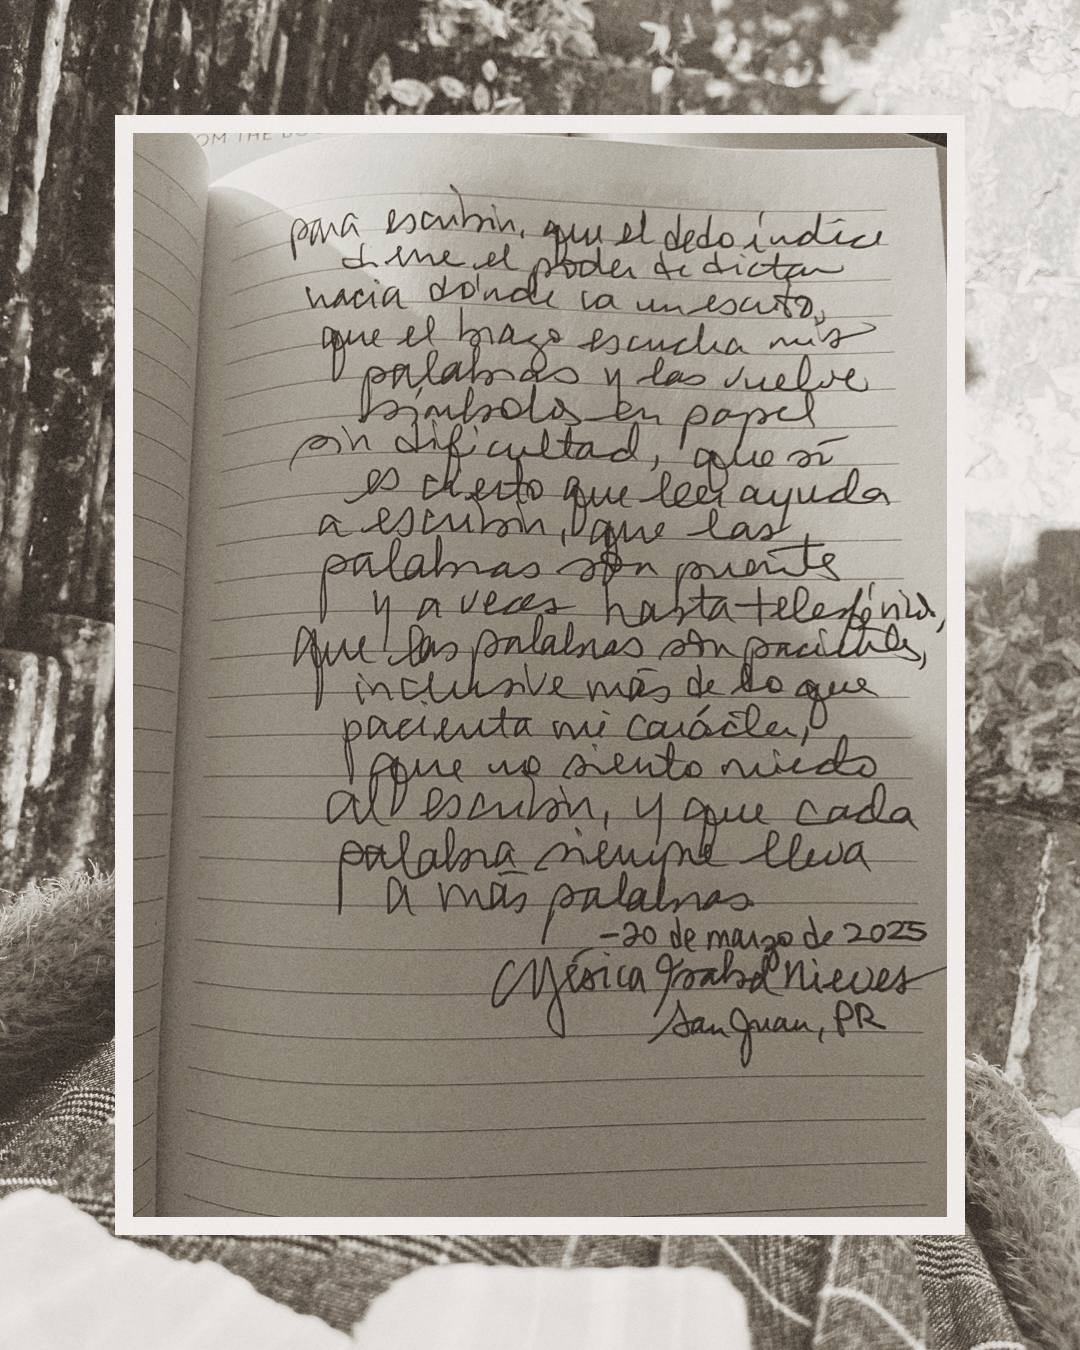 OM THE BO
para escribir, que el dedo índice
tiene el poder de dictar
hacia dónde va un escrito,
que el brazo escucha mis
palabras y las vuelve
símbolos en papel
sin dificultad, que sí
es cierto que leer ayuda
a escribir, que las
palabras son puente
y a veces hasta telefónico,
que las palabras son pacientes,
inclusive más de lo que
pacienta mi carácter,
que no siento miedo
al escribir, y que cada
palabra siempre lleva
a más palabras
-20 de marzo de 2025
Yésica Isabel Nieves
San Juan, PR